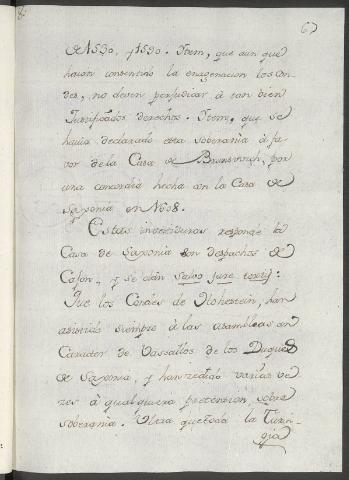 67
de 1530, y 1590. Item, que aun que
havian consentido la enagenacion los Con-
des, no deven perjudicar à tan bien
Justificados derechos. Item, que se
havia declarado esta soberania à fa-
vor de la Casa de Brunswich, por
una concordia hecha con la Casa de
Saxonia en
Estas investiduras responde la
Casa de Saxonia son despachos de
Cajon, y se dàn salvo jure tertij:
Que los Condes de Hohestein, han
asistido siempre à las asambleas en
Caracter de Vassallos de los Duques
de Saxonia, y han cedido varias ve-
zes à qualquiera pretention sobre
soberania. Ultra que toda la Turin-
gia